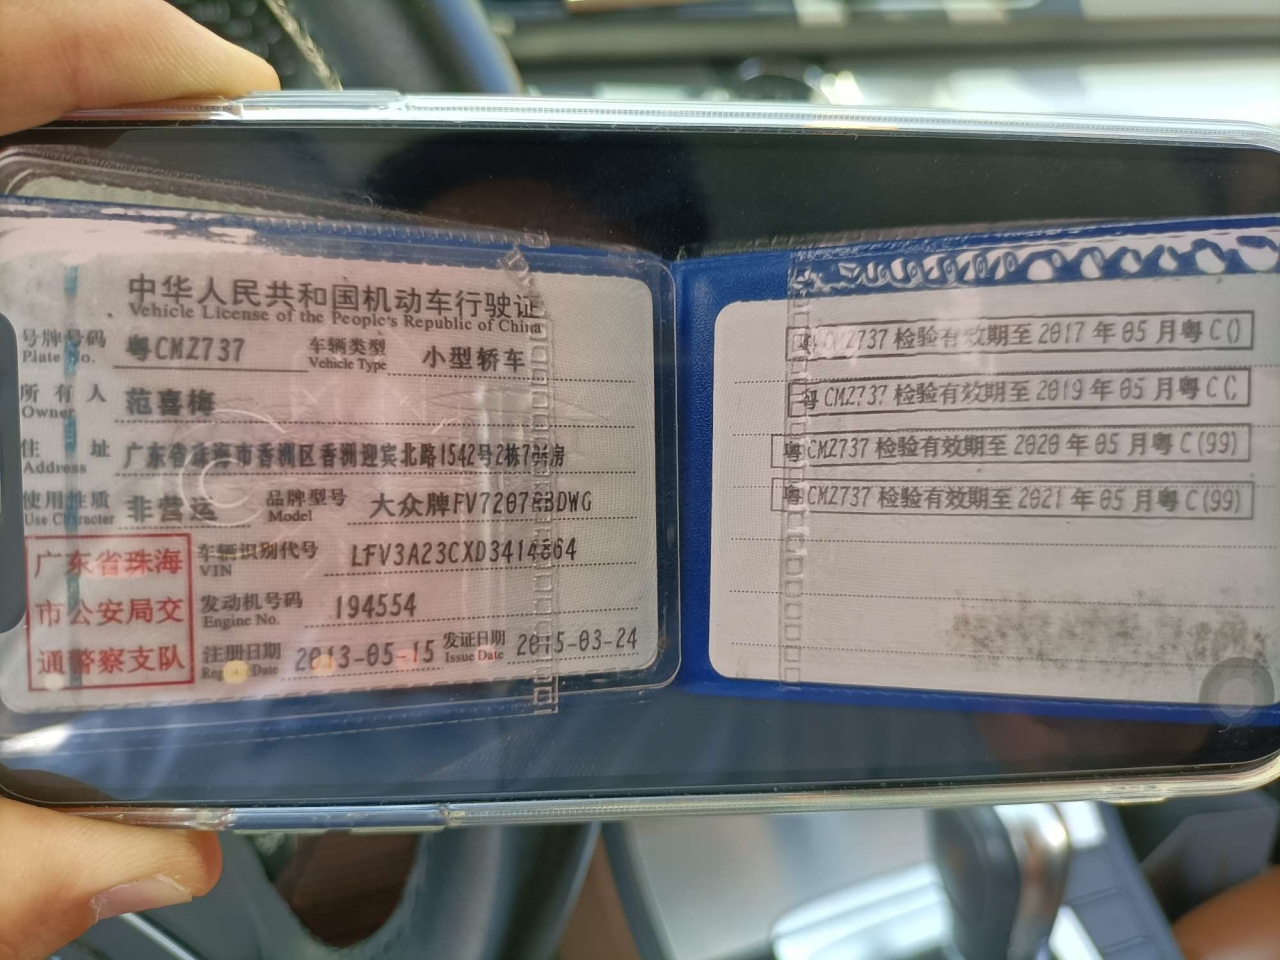 中华人民共和国机动车行驶证
Vehicle License of the People's Republic of China
号牌号码 粤CMZ737 车辆类型 小型轿车
Plate No. Vehicle Type
所有人 范喜梅
Owner
住址 广东省珠海市香洲区香洲迎宾北路1542号2栋 房
Address
使用性质 非营运 品牌型号 大众牌FV7207RBDWG
Use Character Model
车辆识别代号 LFV3A23CXD3414864
VIN
发动机号码 194554
Engine No.
注册日期 2013-05-15 发证日期 2015-03-24
Date Issue Date
广东省珠海
市公安局交
通警察支队
粤CMZ737 检验有效期至 2017 年 05 月粤 C ()
粤CMZ737 检验有效期至 2019 年 05 月粤 C (
粤CMZ737 检验有效期至 2020 年 05 月粤 C (99)
粤CMZ737 检验有效期至 2021 年 05 月粤 C (99)